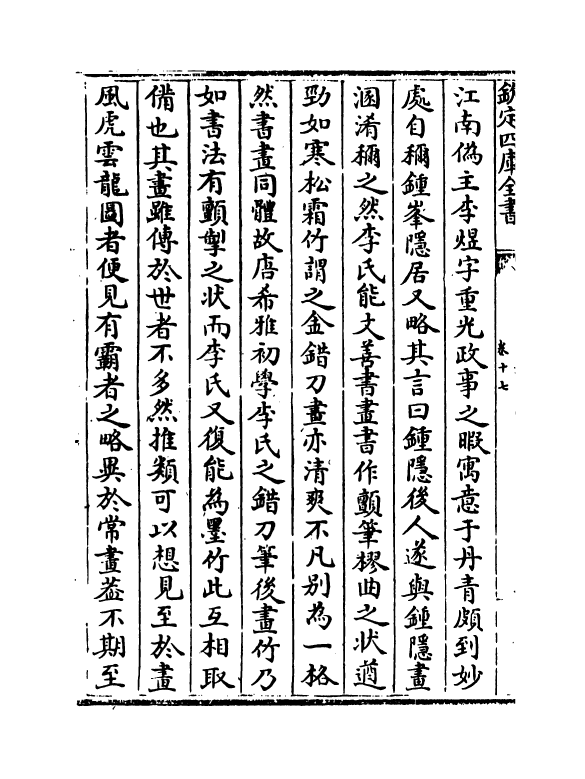 欽定四庫全書
卷十七
江南偽主李煜字重光政事之暇寓意于丹青頗到妙
處自稱鍾峯隱居又略其言曰鍾隱後人遂與鍾隱畫
溷淆稱之然李氏能文善書畫書作顫筆樛曲之狀遒
勁如寒松霜竹謂之金錯刀畫亦清爽不凡别為一格
然書畫同體故唐希雅初學李氏之錯刀筆後畫竹乃
如書法有顫掣之状而李氏又復能為墨竹此互相取
備也其畫雖傳於世者不多然推類可以想見至於畫
風虎雲龍圖者便見有霸者之略異於常畫葢不期至